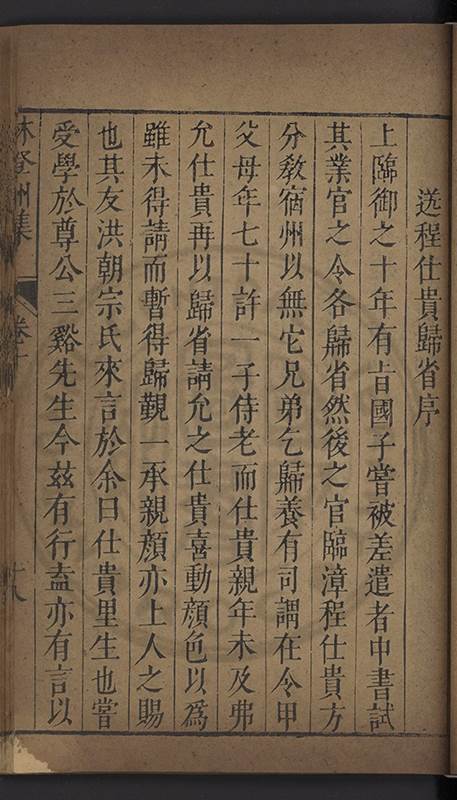 送程仕貴歸省序
上臨御之十年有旨國子嘗被差遣者中書試
其業官之令各歸省然後之官臨漳程仕貴方
分敎宿州以無它兄弟乞歸養有司謂在令甲
父母年七十許一子侍老而仕貴親年未及弗
允仕貴再以歸省請允之仕貴喜動顔色以爲
雖未得請而暫得歸覲一承親顔亦上人之賜
也其友洪朝宗氏來言於余曰仕貴里生也嘗
受學於尊公三谿先生今兹有行盍亦有言以
林登州集
卷十
十八